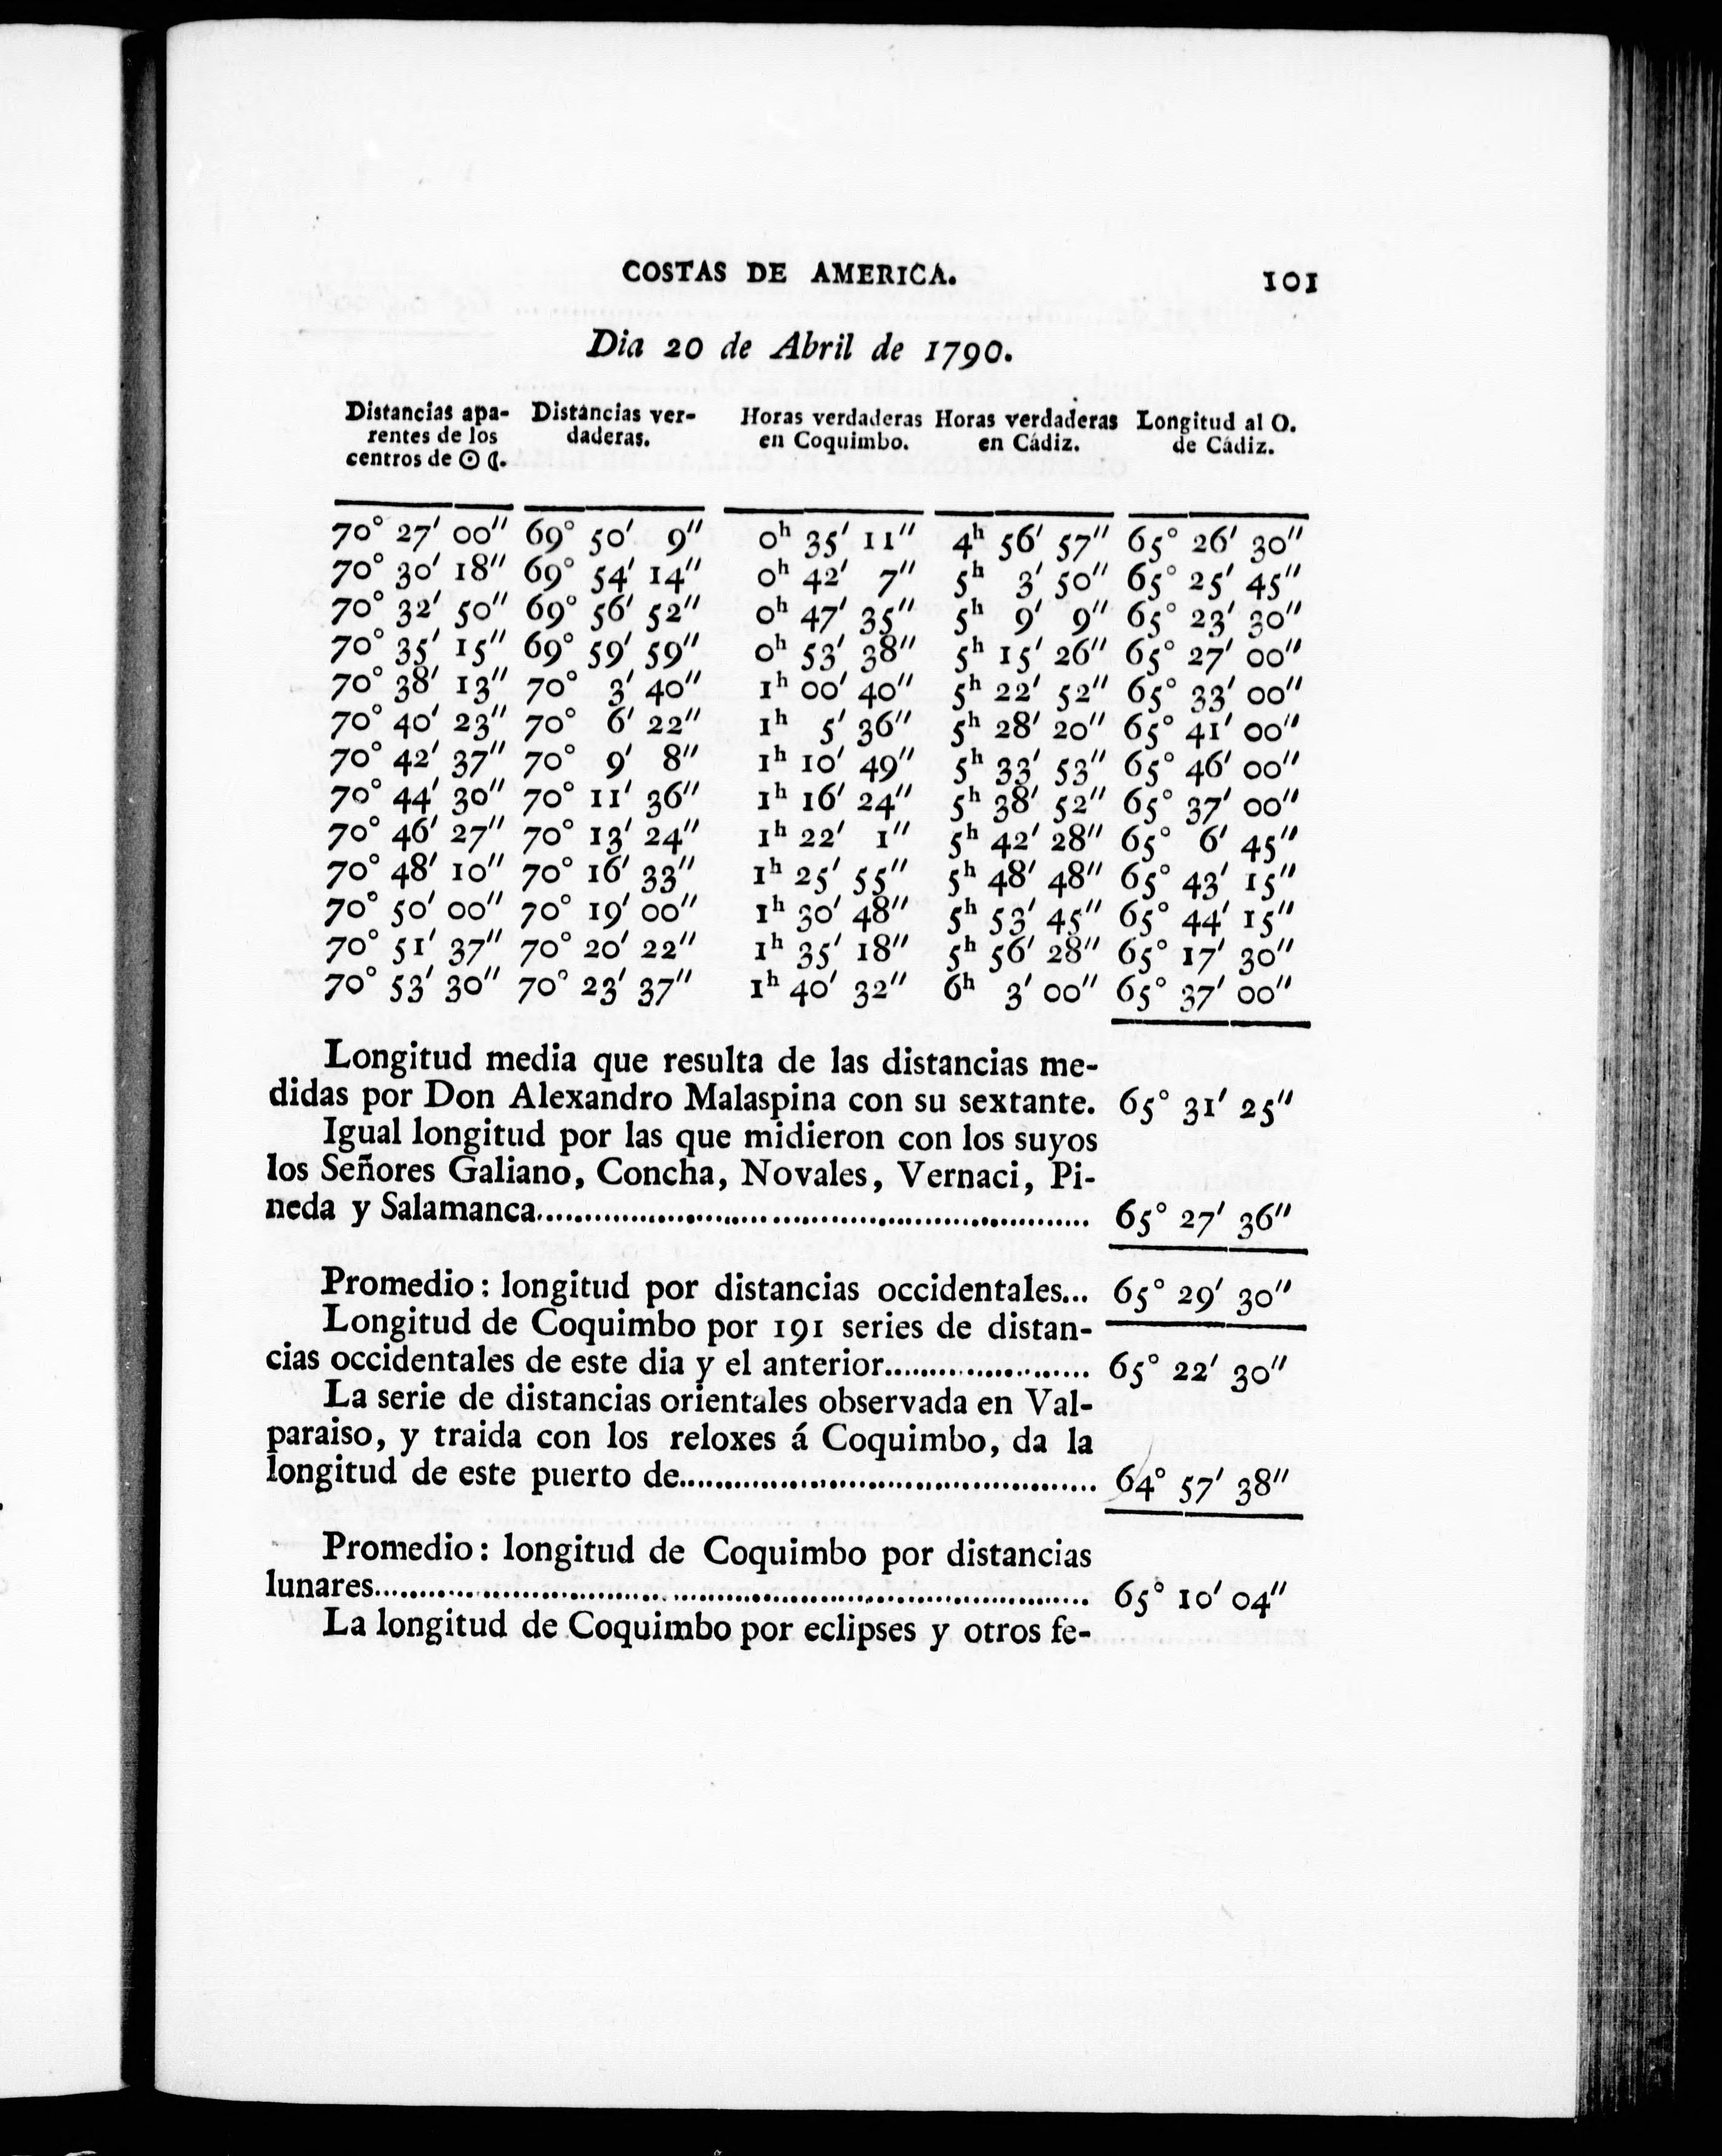 COSTAS DE AMERICA. 101
Dia 20 de Abril de 1790.
Distancias apa- Distancias ver- Horas verdaderas Horas verdaderas Longitud al O.
rentes de los daderas. en Coquimbo. en Cádiz. de Cádiz.
centros de ☉ ☾.
70° 27' 00" 69° 50' 9" 0h 35' 11" 4h 56' 57" 65° 26' 30"
70° 30' 18" 69° 54' 14" 0h 42' 7" 5h 3' 50" 65° 25' 45"
70° 32' 50" 69° 56' 52" 0h 47' 35" 5h 9' 9" 65° 23' 30"
70° 35' 15" 69° 59' 59" 0h 53' 38" 5h 15' 26" 65° 27' 00"
70° 38' 13" 70° 3' 40" 1h 00' 40" 5h 22' 52" 65° 33' 00"
70° 40' 23" 70° 6' 22" 1h 5' 36" 5h 28' 20" 65° 41' 00"
70° 42' 37" 70° 9' 8" 1h 10' 49" 5h 33' 53" 65° 46' 00"
70° 44' 30" 70° 11' 36" 1h 16' 24" 5h 38' 52" 65° 37' 00"
70° 46' 27" 70° 13' 24" 1h 22' 1" 5h 42' 28" 65° 6' 45"
70° 48' 10" 70° 16' 33" 1h 25' 55" 5h 48' 48" 65° 43' 15"
70° 50' 00" 70° 19' 00" 1h 30' 48" 5h 53' 45" 65° 44' 15"
70° 51' 37" 70° 20' 22" 1h 35' 18" 5h 56' 28" 65° 17' 30"
70° 53' 30" 70° 23' 37" 1h 40' 32" 6h 3' 00" 65° 37' 00"
Longitud media que resulta de las distancias me-
didas por Don Alexandro Malaspina con su sextante. 65° 31' 25"
Igual longitud por las que midieron con los suyos
los Señores Galiano, Concha, Novales, Vernaci, Pi-
neda y Salamanca............................................................ 65° 27' 36"
Promedio: longitud por distancias occidentales... 65° 29' 30"
Longitud de Coquimbo por 191 series de distan-
cias occidentales de este dia y el anterior...................... 65° 22' 30"
La serie de distancias orientales observada en Val-
paraiso, y traida con los reloxes á Coquimbo, da la
longitud de este puerto de............................................. 64° 57' 38"
Promedio: longitud de Coquimbo por distancias
lunares.............................................................................. 65° 10' 04"
La longitud de Coquimbo por eclipses y otros fe-